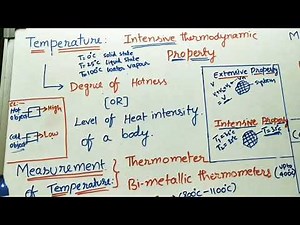 Temperature: Intensive thermodynamic Property
T= 0°C solid state
T= 25°C liquid state
T= 100°C water vapour
Degree of Hotness
[OR]
Level of Heat intensity
of a body.
Hot object → High
Cold object → Low
Extensive Property
System
Intensive Property
Measurement of Temperature:
Thermometer
Bi-metallic thermometers (up to 400°C)
(800°C-1100°C)